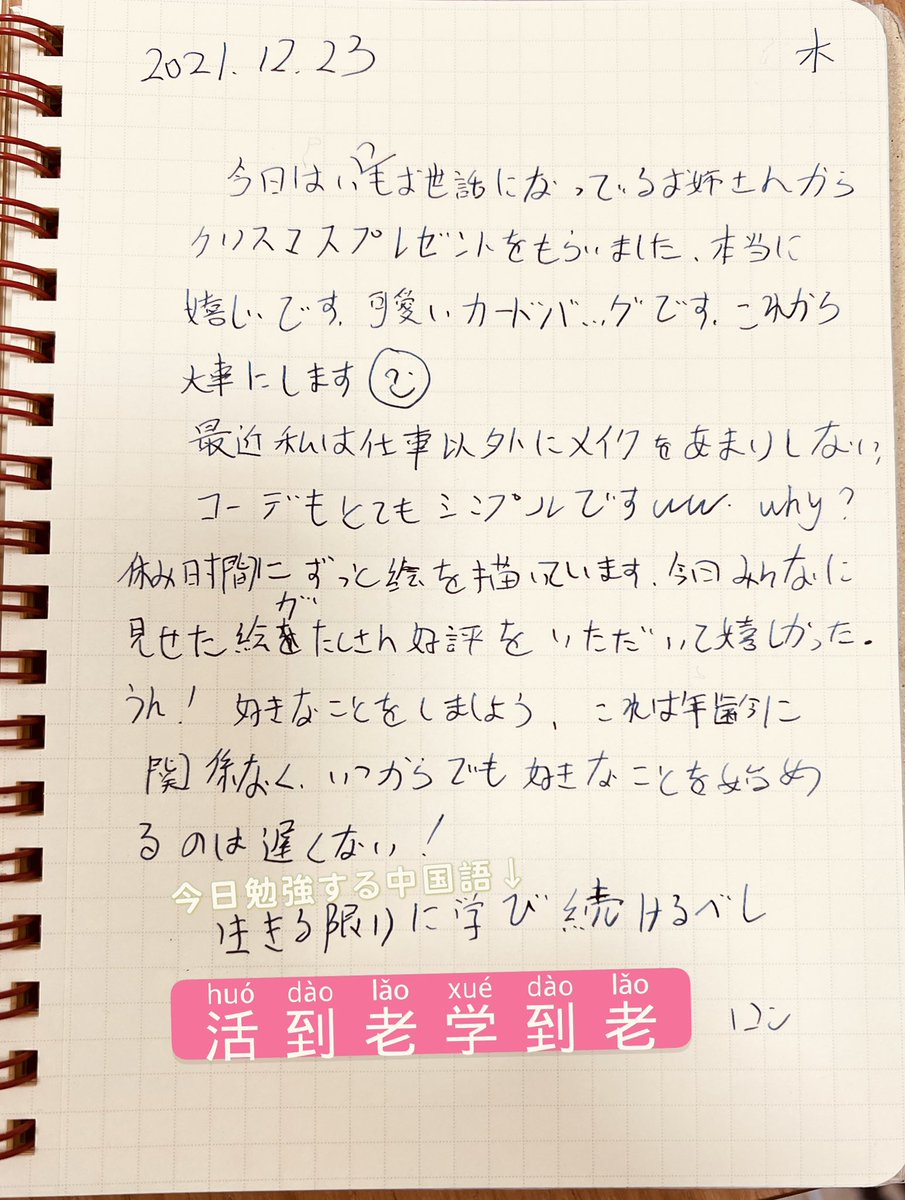 2021.12.23 木
今日はいつもお世話になっているお姉さんから
クリスマスプレゼントをもらいました、本当に
嬉しいです、可愛いカードバッグです、これから
大事にします
最近私は仕事以外にメイクをあまりしない、
コーデもとてもシンプルですww. why?
休み時間にずっと絵を描いています、今日みんなに
見せた絵がたくさん好評をいただいて嬉しかった。
うん! 好きなことをしましょう、これは年齢に
関係なく、いつからでも好きなことを始め
るのは遅くない!
今日勉強する中国語↓
生きる限りに学び続けるべし
huó dào lǎo xué dào lǎo
活到老学到老